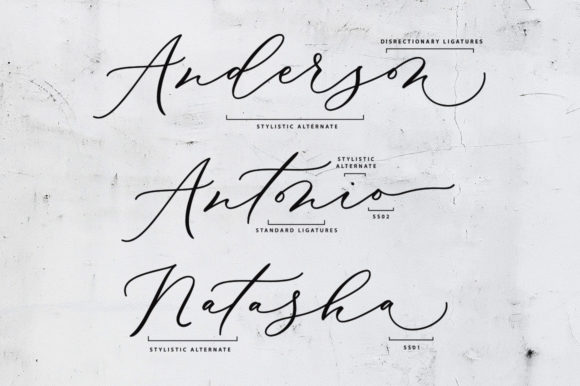 DISRECTIONARY LIGATURES
Anderson
STYLISTIC ALTERNATE
STYLISTIC
ALTERNATE
Antonio
SS02
STANDARD LIGATURES
Natasha
STYLISTIC ALTERNATE
SS01